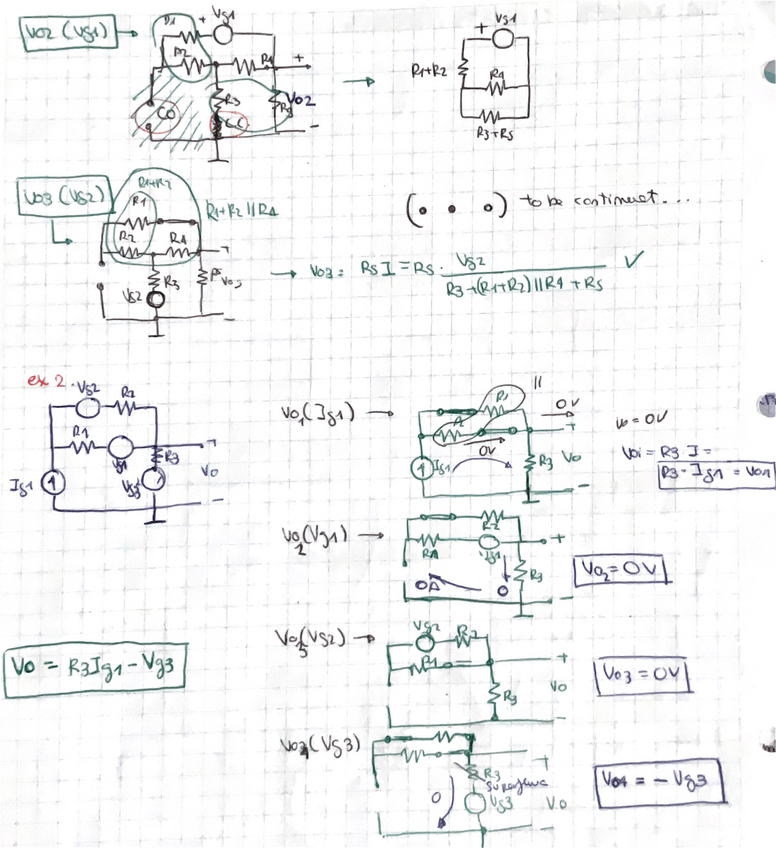 Vo2 (Vg1)
R1 + Vg1
R2 R1 +
R3 Vo2
CO C.C. R5
-
+ Vg1
R1+R2
R4
R3+R5
Vo3 (Vg2)
R1+R2
R1 R1+R2 // R4
R2 R4 +
R3 R5 Vo3
Vg2
-
(. . .) to be continuet...
Vo3 = R5 I = R5 · Vg2
R3+(R1+R2)//R4 + R5 ✓
ex 2.
Vg2 R2
R1 Vg1 +
R3 Vo
Ig1 Vg3
-
Vo1 (Ig1)
R2 //
0V
R1 +
0V
Ig1 R3 Vo
-
Vo = 0V
Vo1 = R3 I =
R3 · Ig1 = Vo1
Vo2 (Vg1)
R2
R1 Vg1 +
R3
0A 0
-
Vo2 = 0V
Vo3 (Vg2)
Vg2 R2
R1 +
R3 Vo
-
Vo3 = 0V
Vo = R3 Ig1 - Vg3
Vo4 (Vg3)
+
R3
0 Vg3 Vo
-
Vo4 = - Vg3